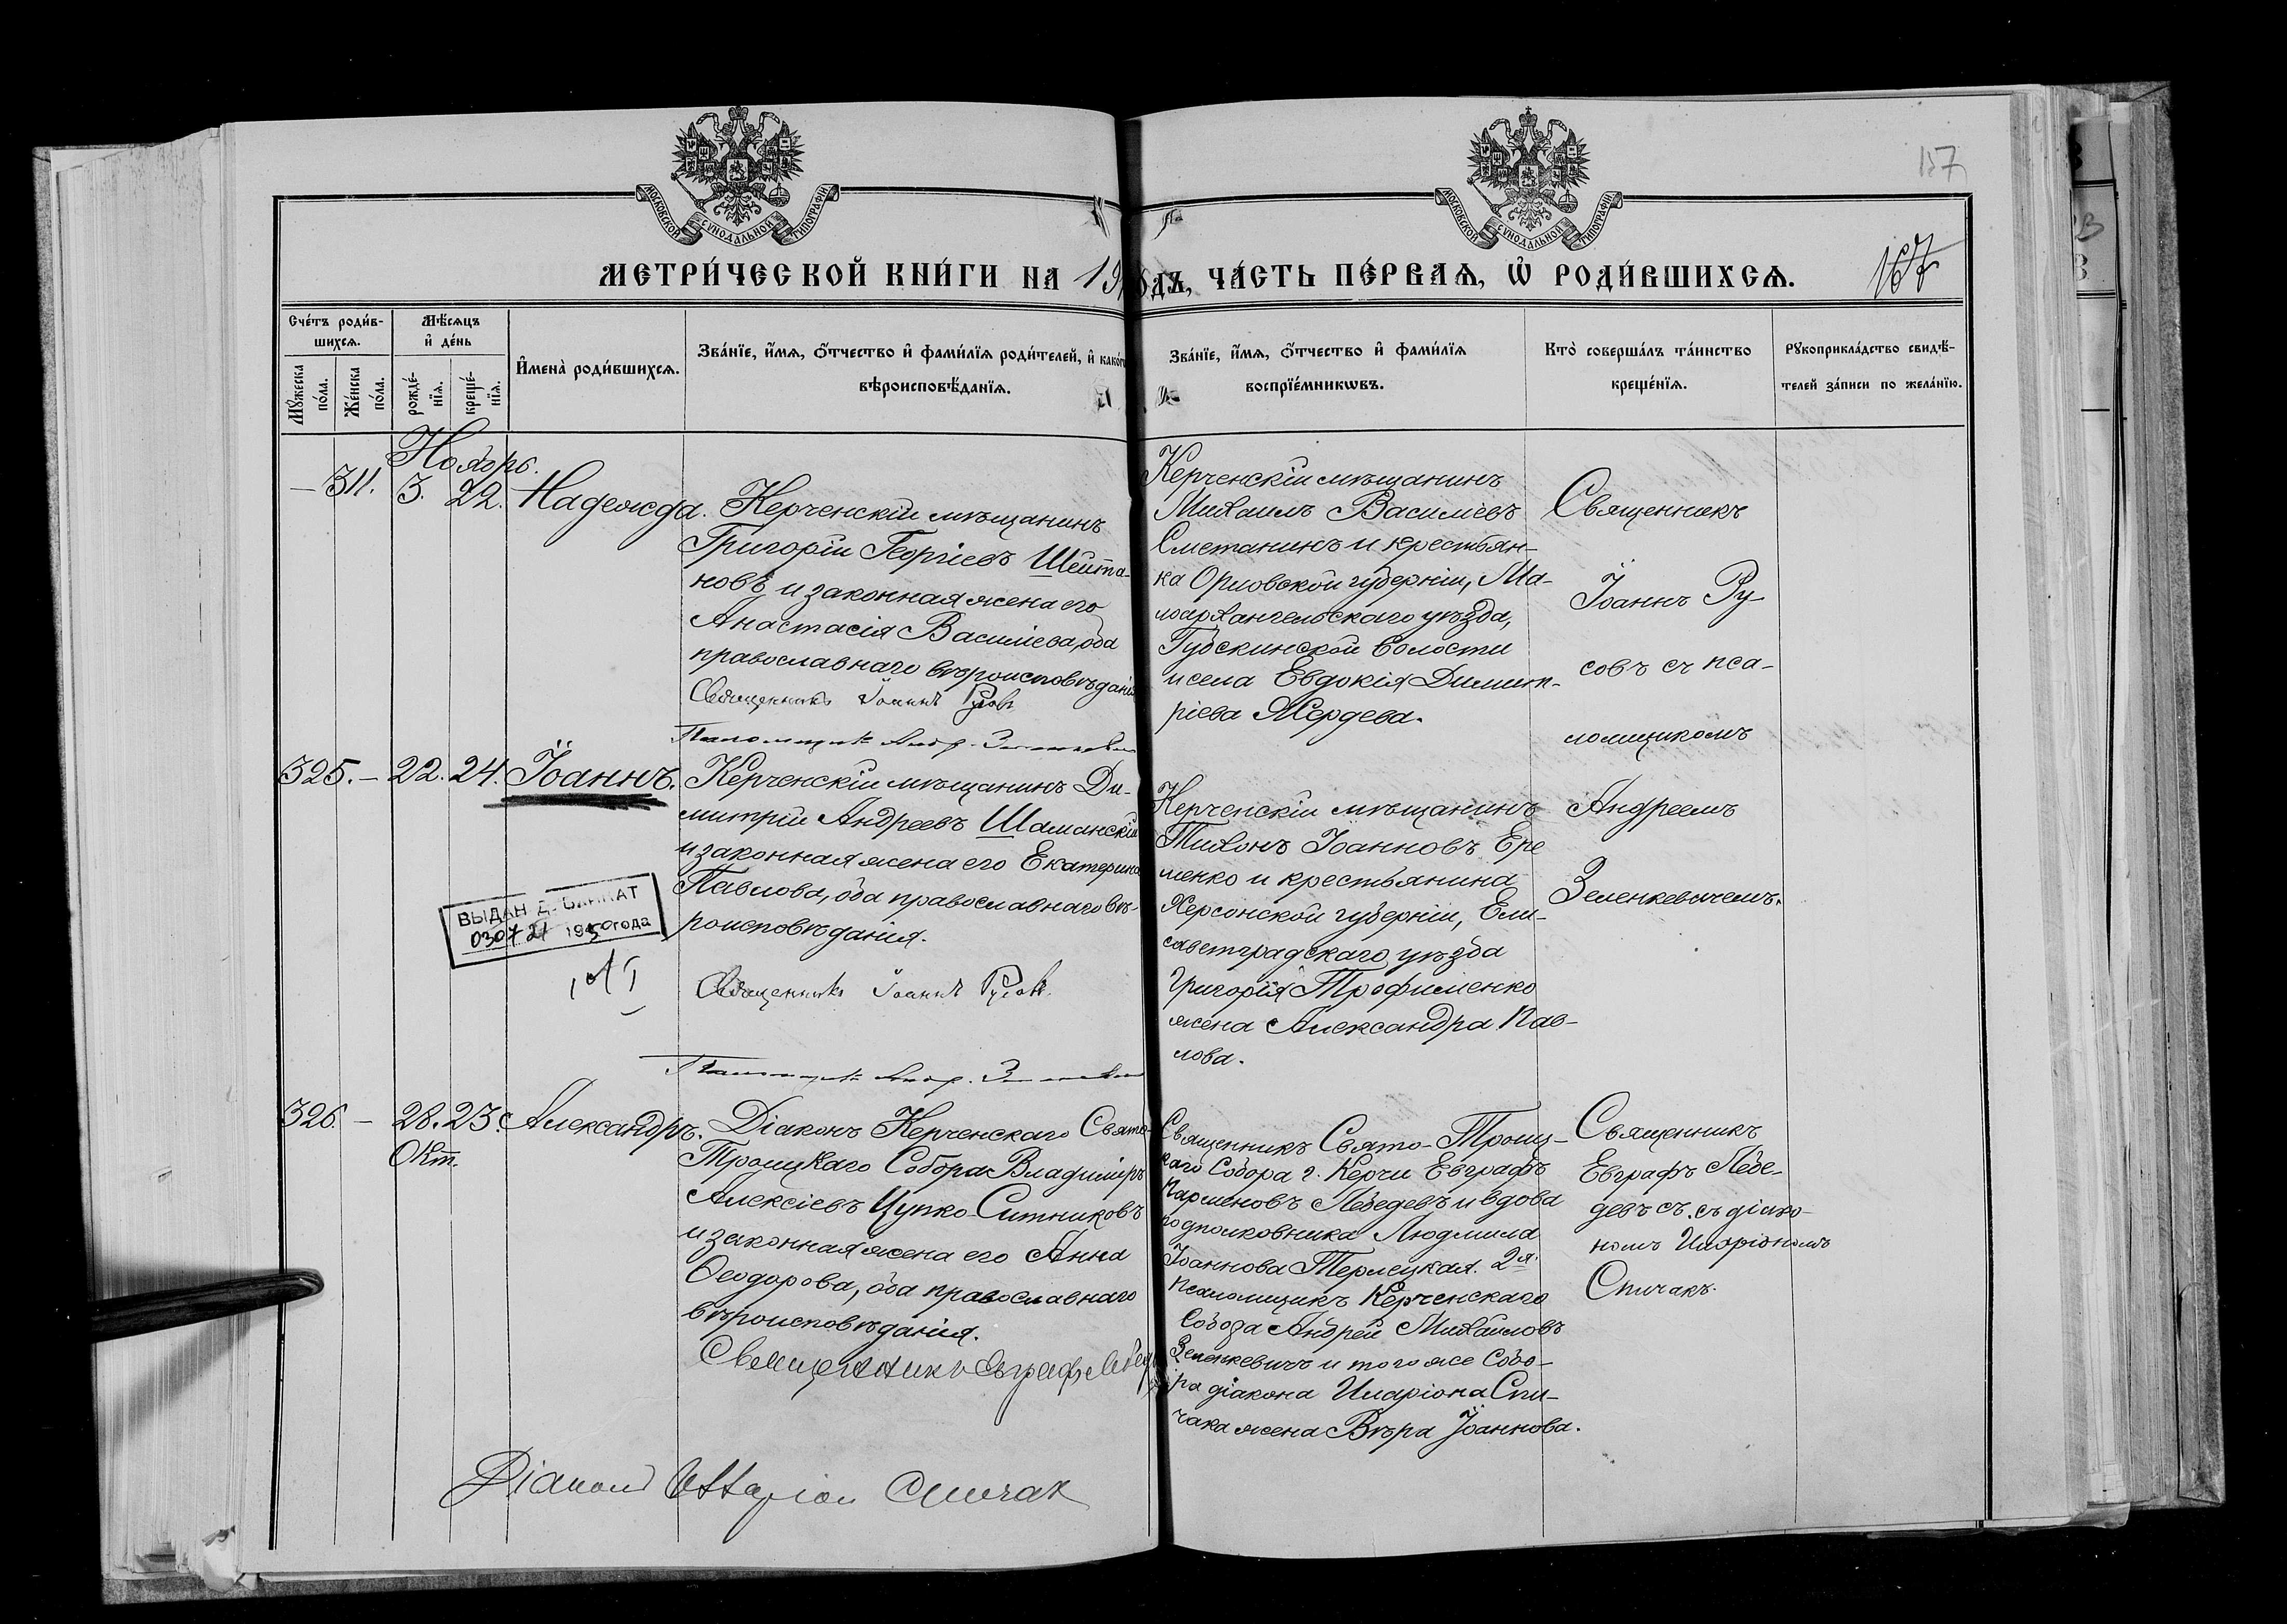 МОСКОВСКОЙ СѴНОДАЛЬНОЙ ТИПОГРАФІИ
МОСКОВСКОЙ СѴНОДАЛЬНОЙ ТИПОГРАФІИ
157
167
МЕТРИ́ЧЕСКОЙ КНИ́ГИ НА
ЧА́СТЬ ПЕ́РВАѦ, Ѿ РОДИ́ВШИХСѦ.
Сче́тъ роди́в-
шихсѧ.
Мꙋ́жеска по́ла.
Же́нска по́ла.
Мѣ́сѧцъ
и҆ де́нь
рожде́-
нїѧ.
креще́-
нїѧ.
И҆мена̀ роди́вшихсѧ.
Зва́нїе, и҆́мѧ, ѻ҆́тчество и҆ фами́лїѧ роди́телей, и҆ како́гѡ
вѣроисповѣ́данїѧ.
Зва́нїе, и҆́мѧ, ѻ҆́тчество и҆ фами́лїѧ
воспрїе́мникѡвъ.
Кто̀ соверша́лъ та́инство
креще́нїѧ.
Рꙋкоприкла́дство свидѣ́-
телей за́писи по жела́нїю.
Ноябрь.
— 311. 3. 22. Надежда.
Керченскій мѣщанинъ
Григорій Георгіевъ Шейта-
новъ и законная жена его
Анастасія Василіева, оба
православнаго вѣроисповѣданія
Священникъ Іоаннъ Русовъ
Псаломщикъ Андр. Зеленкевич
Керченскій мѣщанинъ
Михаилъ Василіевъ
Сметанинъ и крестьян-
ка Орловской губерніи, Ма-
лоархангельскаго уѣзда,
Губскинской волости
и села Евдокія Димит-
ріева Жердева.
Священникъ
Іоаннъ Ру-
совъ съ пса-
ломщикомъ
Андреемъ
Зеленкевичемъ.
325. — 22. 24. Іоаннъ.
Керченскій мѣщанинъ Ди-
митрій Андреевъ Шаманскій
и законная жена его Екатерина
Павлова, оба православнаго вѣ-
роисповѣданія.
Священникъ Іоаннъ Русовъ
Псаломщикъ Андр. Зеленкевич
ВЫДАН ДУБЛИКАТ
030721 1950 года
Керченскій мѣщанинъ
Тихонъ Іоанновъ Ере
менко и крестьянина
Херсонской губерніи, Ели-
саветградскаго уѣзда
Григорія Трофименко
жена Александра Пав-
лова.
326. — 28. 23. Александръ.
Окт.
Діаконъ Керченскаго Свято-
Троицкаго Собора Владиміръ
Алексіевъ Цупко-Ситниковъ
и законная жена его Анна
Ѳеодорова, оба православнаго
вѣроисповѣданія.
Священникъ Евграфъ Лебедевъ
Діаконъ Иларіон Спичак
Священникъ Свято-Троиц-
каго Собора г. Керчи Евграфъ
Парменовъ Лебедевъ и вдова
подполковника Людмила
Іоаннова Терлецкая. 2я.
Псаломщикъ Керченскаго
Собора Андрей Михаиловъ
Зеленкевичъ и того же Собо-
ра діакона Иларіона Спи-
чака жена Вѣра Іоаннова.
Священникъ
Евграфъ Лебе-
девъ съ. съ діако-
номъ Иларіономъ
Спичакъ.